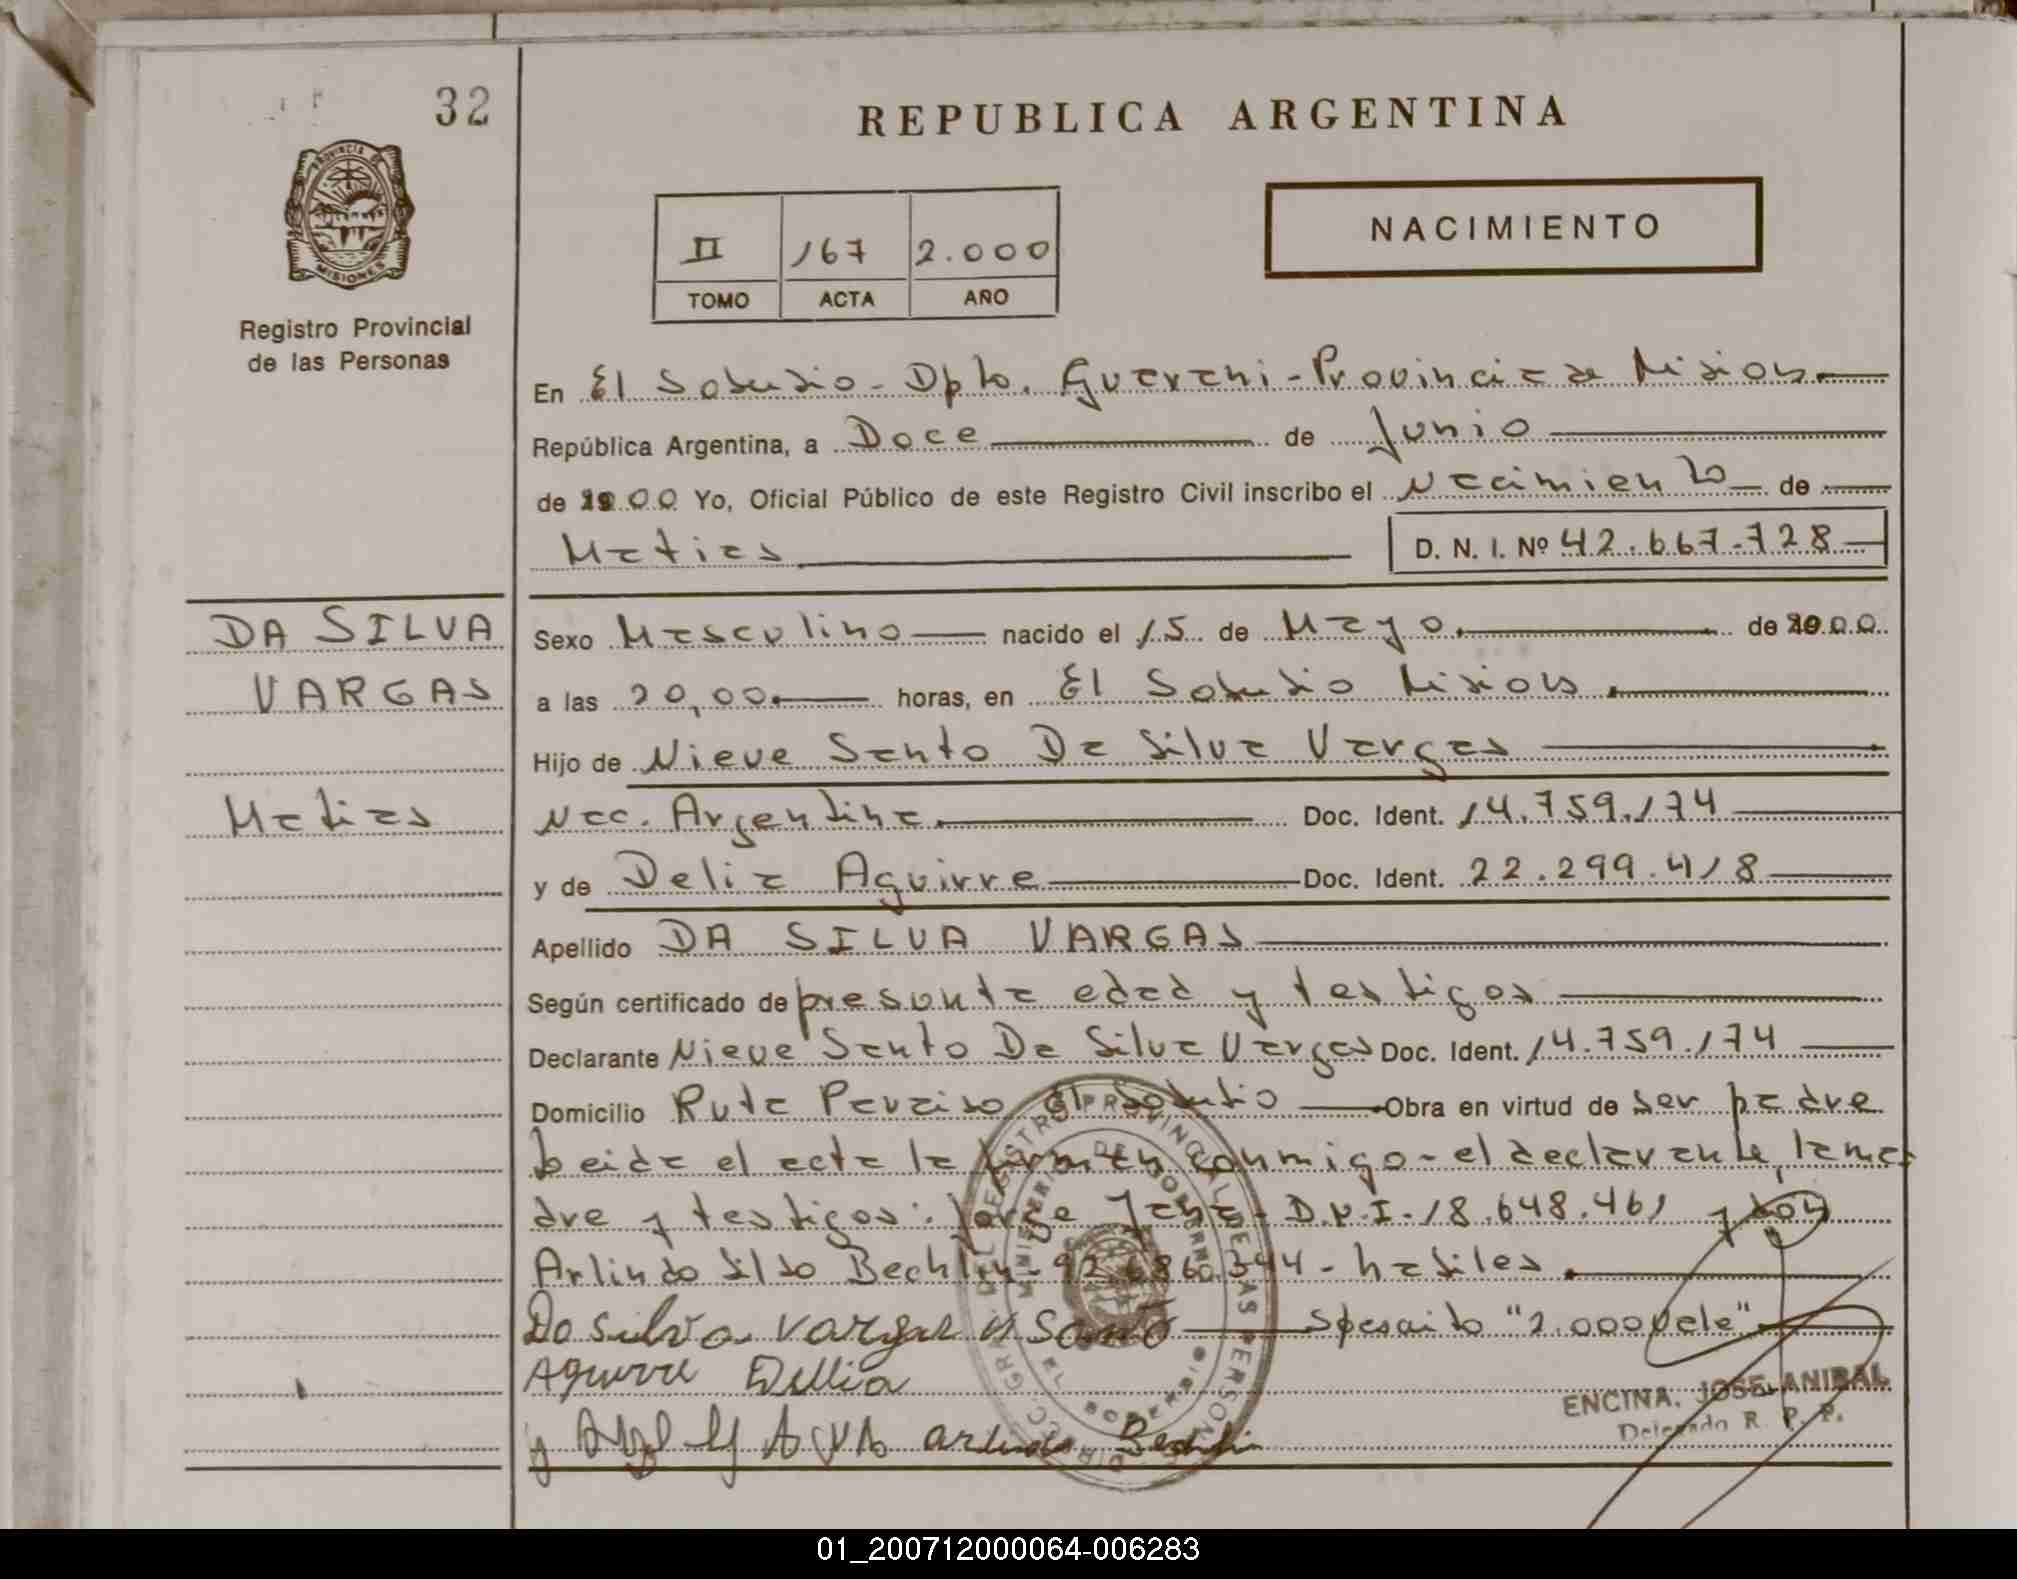 32
REPUBLICA ARGENTINA
PROVINCIA DE
MISIONES
Registro Provincial
de las Personas
II 167 2.000
TOMO ACTA AÑO
NACIMIENTO
En El Soberbio - Dpto. Guarani - Provincia de Misiones
República Argentina, a Doce de Junio
de 2000 Yo, Oficial Público de este Registro Civil inscribo el Nacimiento de
Matias D. N. I. Nº 42.667.728
DA SILVA
VARGAS
Matias
Sexo Masculino nacido el 15 de Mayo de 2000
a las 20,00 horas, en El Soberbio Misiones
Hijo de Nieve Santo Da Silva Vargas
Nac. Argentina Doc. Ident. 14.759.174
y de Delia Aguirre Doc. Ident. 22.299.418
Apellido DA SILVA VARGAS
Según certificado de presunta edad y testigos
Declarante Nieve Santo Da Silva Vargas Doc. Ident. 14.759.174
Domicilio Ruta Paraiso El Soberbio Obra en virtud de ser padre
Leida el acta la firman conmigo - el declarante, la ma
dre y testigos: Jorge D.N.I. 18.648.461 y
Arlindo Bechlin - 92.686.344 - habiles.
Da Silva Vargas N Santo "2.000 Vale"
Aguirre Dellia
Arlindo Bechlin
ENCINA, JOSE ANIBAL
Delegado R. P. P.
01_200712000064-006283